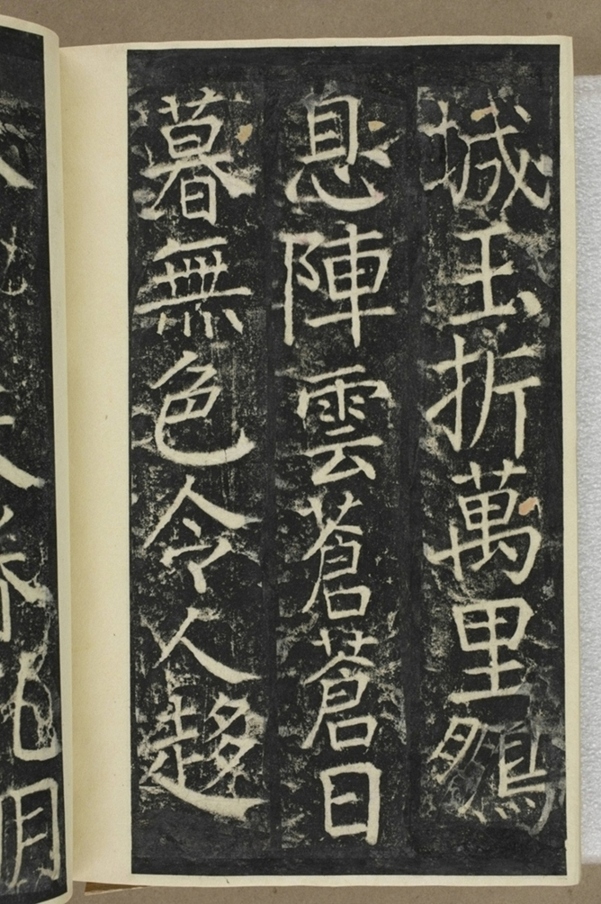 城玉折萬里
陣雲蒼蒼日
暮無色令人趍